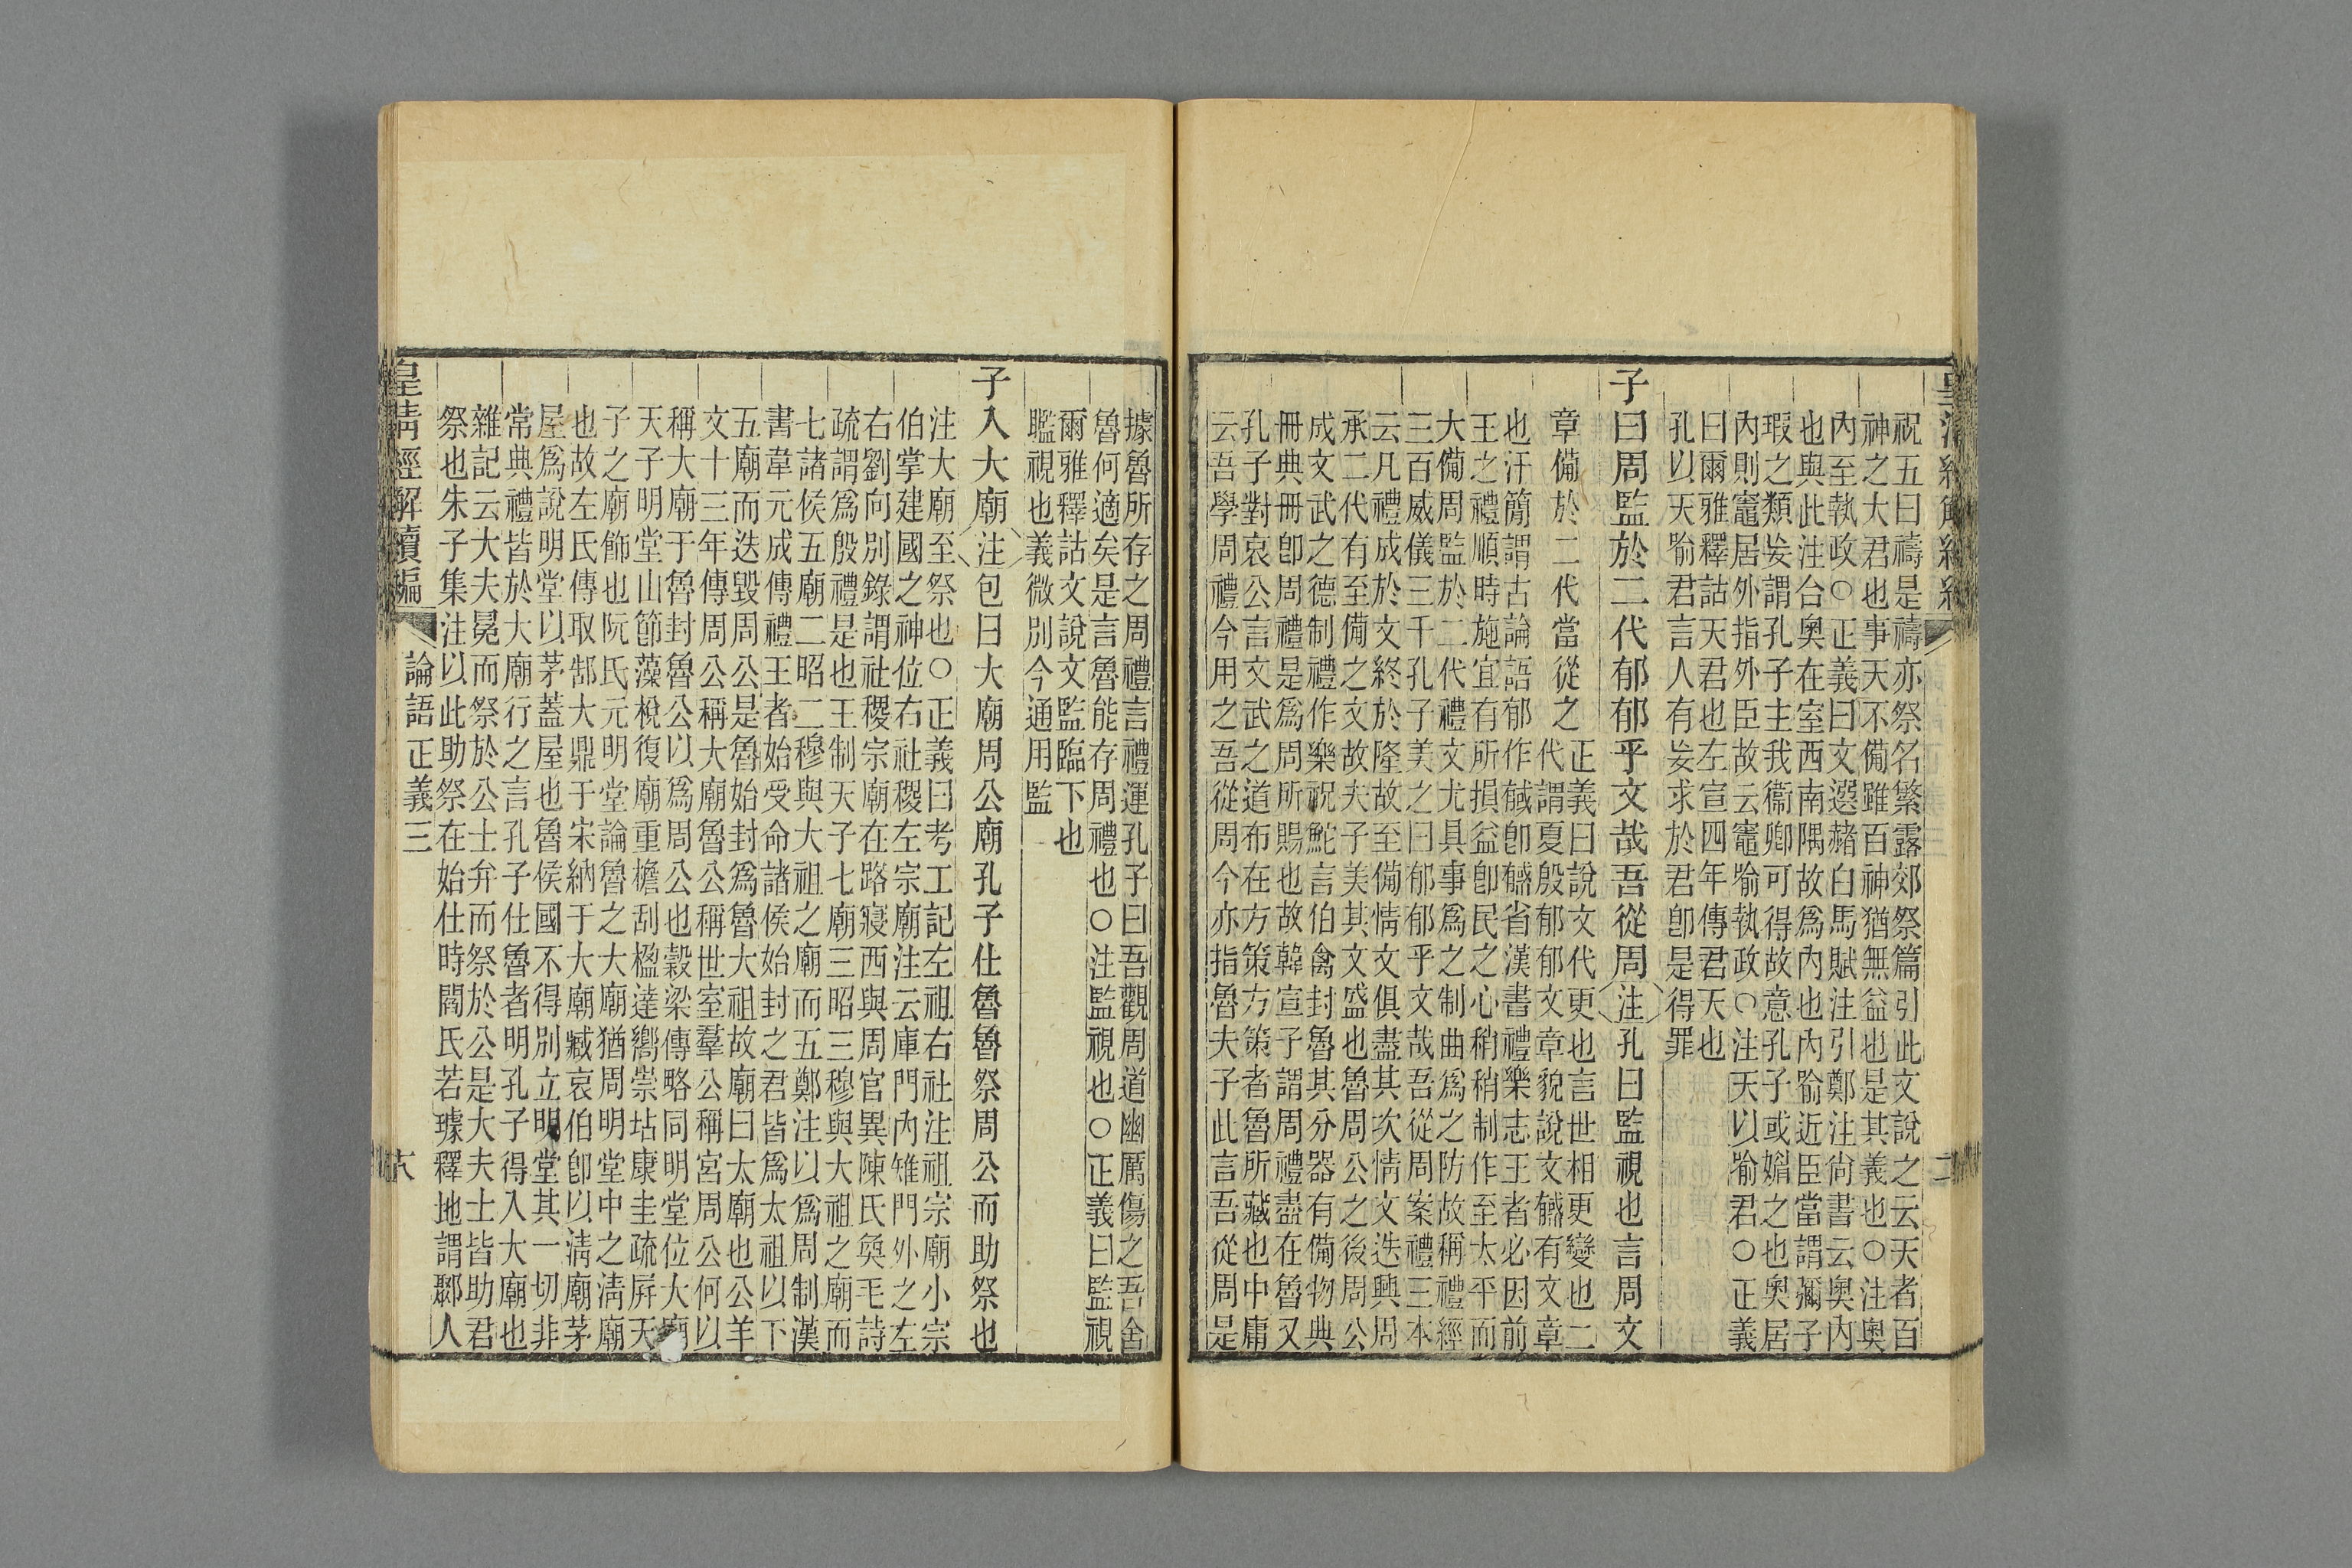 祝五曰禱是禱亦祭名繁露郊祭篇引此文說之云天者百
神之大君也事天不備雖百神猶無益也是其義也○注奧
內至執政○正義曰文選赭白馬賦注引鄭注尙書云奧內
也與此注合奧在室西南隅故爲內也內喻近臣當謂彌子
瑕之類妄謂孔子主我衞卿可得故意孔子或媚之也奧居
內則竈居外指外臣故云竈喻執政○注天以喻君○正義
曰爾雅釋詁天君也左宣四年傳君天也
孔以天喻君言人有妄求於君卽是得罪
子曰周監於二代郁郁乎文哉吾從周注孔曰監視也言周文
章備於二代當從之
正義曰說文代更也言世相更變也二
代謂夏殷郁郁文章貌說文䤋有文章
也汗簡謂古論語郁作䤋卽䤋省漢書禮樂志王者必因前
王之禮順時施宜有所損益卽民之心稍稍制作至太平而
大備周監於二代禮文尤具事爲之制曲爲之防故稱禮經
三百威儀三千孔子美之曰郁郁乎文哉吾從周案禮三本
云凡禮成於文終於隆故至備情文俱盡其次情文迭興周
承二代有至備之文故夫子美其文盛也魯周公之後周公
成文武之德制禮作樂祝鮀言伯禽封魯其分器有備物典
冊典冊卽周禮是爲周所賜也故韓宣子謂周禮盡在魯又
孔子對哀公言文武之道布在方策方策者魯所藏也中庸
云吾學周禮今用之吾從周今亦指魯夫子此言吾從周是
據魯所存之周禮言禮運孔子曰吾觀周道幽厲傷之吾舍
魯何適矣是言魯能存周禮也○注監視也○正義曰監視
爾雅釋詁文說文監臨下也
䀾視也義微別今通用監
子入大廟注包曰大廟周公廟孔子仕魯魯祭周公而助祭也
注大廟至祭也○正義曰考工記左祖右社注祖宗廟小宗
伯掌建國之神位右社稷左宗廟注云庫門內雉門外之左
右劉向別錄謂社稷宗廟在路寢西與周官異陳氏奐毛詩
疏謂爲殷禮是也王制天子七廟三昭三穆與大祖之廟而
七諸侯五廟二昭二穆與大祖之廟而五鄭注以爲周制漢
書韋元成傳禮王者始受命諸侯始封之君皆爲太祖以下
五廟而迭毀周公是魯始封爲魯大祖故廟曰太廟也公羊
文十三年傳周公稱大廟魯公稱世室羣公稱宮周公何以
稱大廟于魯封魯公以爲周公也穀梁傳略同明堂位大廟
天子明堂山節藻梲復廟重檐刮楹達鄉崇坫康圭疏屛天
子之廟飾也阮氏元明堂論魯之大廟猶周明堂中之淸廟
也故左氏傳取郜大鼎于宋納于大廟臧哀伯卽以淸廟茅
屋爲說明堂以茅蓋屋也魯侯國不得別立明堂其一切非
常典禮皆於大廟行之言孔子仕魯者明孔子得入大廟也
雜記云大夫冕而祭於公士弁而祭於公是大夫士皆助君
祭也朱子集注以此助祭在始仕時閻氏若璩釋地謂鄹人
皇淸經解續編
論語正義三
六